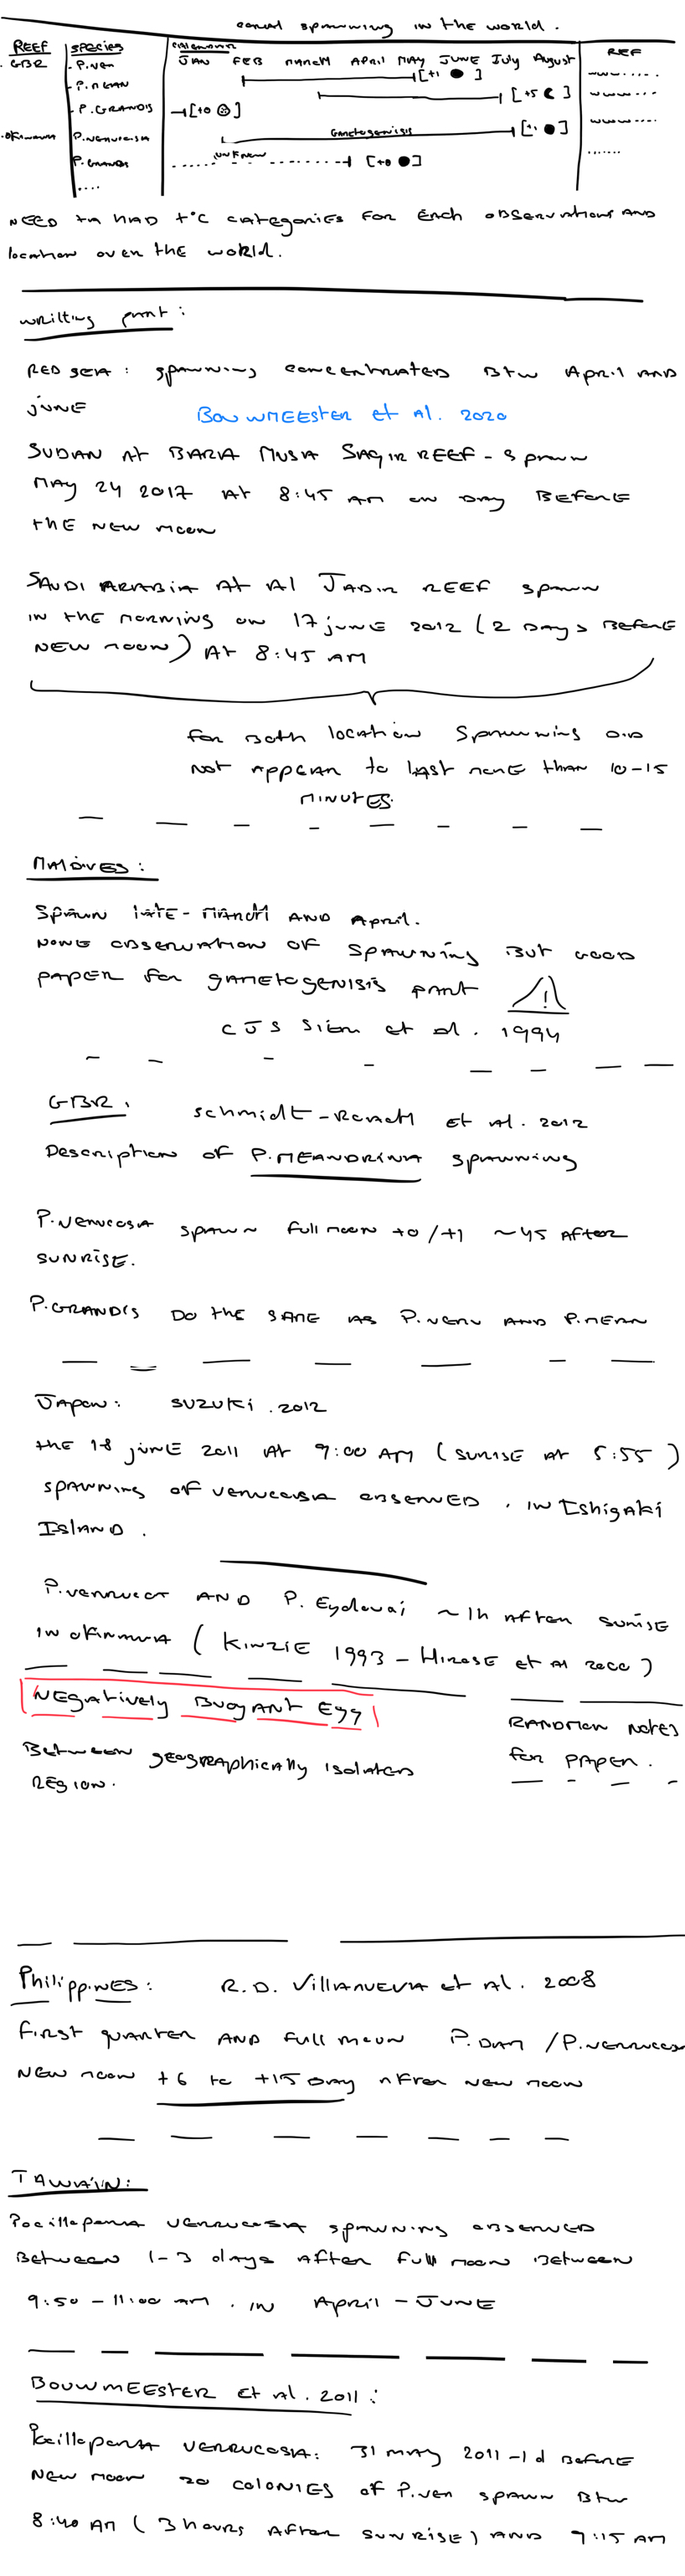 coral spawning in the world.
REEF species calendar JAN FEB MARCH April MAY JUNE July August REF
- GBR - P.ver [+1 ]
- P.MEAN [+5 ]
- P.GRANDIS [+0 ]
- Okinawa P.verrucosa Gametogenisis [+1 ]
P.GRANDIS unknow [+0 ]
....
NEED to HAD t°C categories FOR Each OBSERVATIONS AND
location over the world.
writting part:
RED SEA: spawning concentrated Btw April AND
JUNE BOUWMEESTER et Al. 2020
SUDAN At BARA MUSA SAQIR REEF - spawn
MAY 24 2017 At 8:45 AM on DAY BEFORE
the NEW moon
SAUDI ARABIA At Al JADIR REEF spawn
IN the morning on 17 JUNE 2012 (2 DAYS BEFORE
NEW moon) At 8:45 AM
For Both location Spawning DID
Not Appear to last more than 10-15
MINUTES.
MALDIVES:
Spawn late-MARCH AND April.
NONE OBSERVATION OF SPAWNING But GOOD
PAPER for gametogenisis part !
CJS Sier et al. 1994
GBR. Schmidt-Roach Et Al. 2012
Description of P.MEANDRINA spawning
P.verrucosa spawn full moon +0/+1 ~45 After
SUNRISE.
P.GRANDIS DO the SAME AS P.verru AND P.MEAN
Japon: SUZUKI .2012
the 18 JUNE 2011 At 9:00 AM (SUNRISE At 5:55)
spawning of verrucosa OBSERVED . IN Ishigaki
Island.
P.verrucos AND P. Eydouxi ~1h After sunrise
IN okinawa (KINZIE 1993 - HIROSE et Al 2000)
NEgatively Buoyant Egg
Between geographically isolated
REGION.
RANDMON NOTES
for PAPER.
Philippines: R.D. VILLANUEVA et Al. 2008
First quarter AND Full moon P.DAM /P.verrucos
NEW moon +6 to +15 DAY After NEW moon
TAWAIIN:
Pocillopora verrucosa spawning observed
Between 1-3 days After full moon Between
9:50 - 11:00 AM . IN April - JUNE
BOUWMEESTER et Al. 2011:
Pocillopora VERRUCOSA: 31 MAY 2011 -1d BEFORE
NEW moon 20 COLONIES of P.ver spawn Btw
8:40 AM (3 hours After SUNRISE) AND 9:15 AM